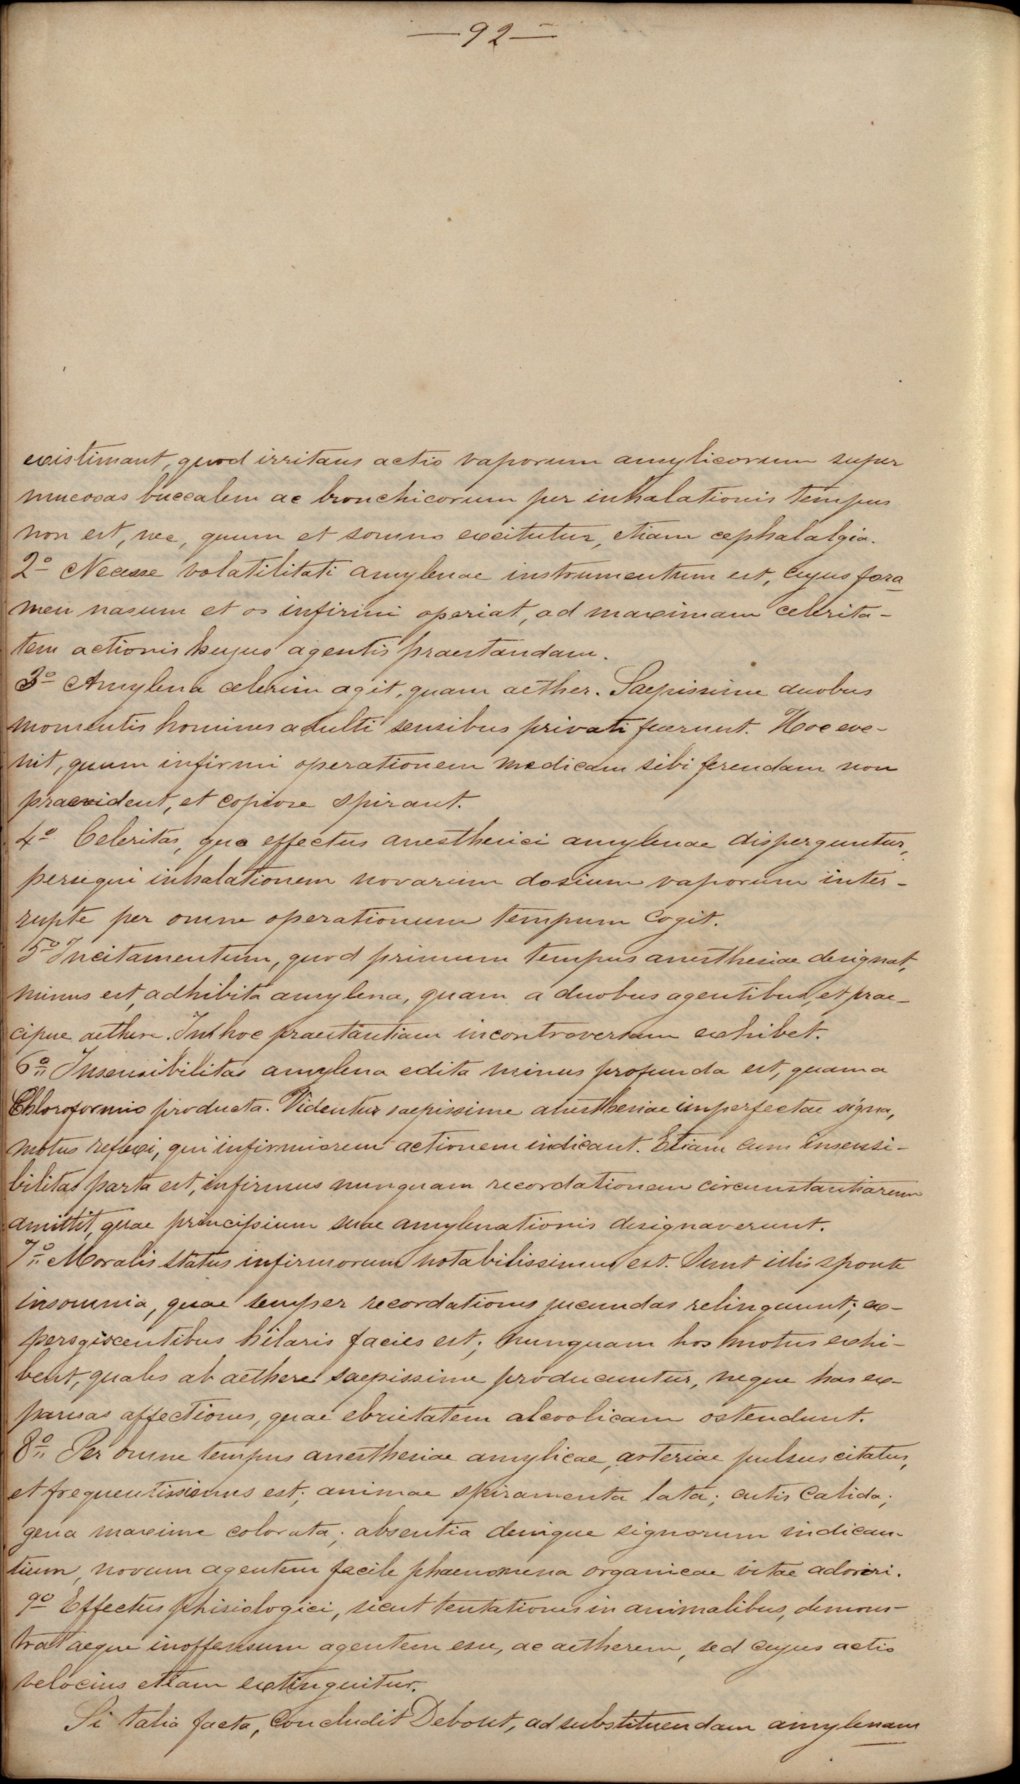 —92—
existimant, quod irritans actio vaporum amylicorum super
mucosas buccalem ac bronchicorum per inhalationis tempus
non est, nec, quum et somno excitutur, etiam cephalalgia.
2º Necesse volatilitati amylenae instrumentum est, cujus fora
men nasum et os infirmi operiat, ad maximam celerita-
tem actionis hujus agentis praestandam.
3º Amylena celeriu agit, quam aether. Saepissime duobus
momentis homines adulti sensibus privati fuerunt. Hoc eve-
nit, quum infirmi operationem medicam sibi ferendam non
praevident, et copiose spirant.
4º Celeritas, qua effectus anesthesici amylenae disperguntur,
persequi inhalationem novarum dosium vaporum inter-
rupte per omne operationum tempum cogit.
5º Incitamentum, quod primum tempus anesthesiae designat,
minus est, adhibita amylena, quam a duobus agentibus, et prae-
cipue aethere. In hoc praestantiam incontroversam exhibet.
6º Insensibilitas amylena edita minus profunda est, quam a
Chloroformio producta. Videntur saepissime anestheniae imperfectae signa,
motus reflexi, qui infirmiorem actionem indicant. Etiam cum insensi-
bilitas parta est, infirmus nunquam recordationem circumstantiarum
amittit, quae principium suae amylenationis designaverunt.
7º Moralis status infirmorum notabilissimus est. Sunt illis sponte
insomnia, quae semper recordationes jucundas relinquunt; ex-
pergiscentibus hilaris facies est; nunquam hos motus exhi-
bent, quales ab aethere saepissime producuntur, neque has ex-
pansas affectiones, quae ebrietatem alcoolicam ostendunt.
8º Per omne tempus anestheniae amylicae, arteriae pulsus citatus,
et frequentissimus est; animae spiramenta lata; cutis calida;
gena maxime colorata; absentia denique signorum indican-
tium, novum agentem facile phaenomena organicae vitae adoriri.
9º Effectus phisiologici, sicut tentationes in animalibus, demons-
trat aeque inoffensum agentem esse, ac aetherem, sed cujus actio
velocius etiam extinguitur.
Si talia facta, concludit Debout, ad substituendam amylenam